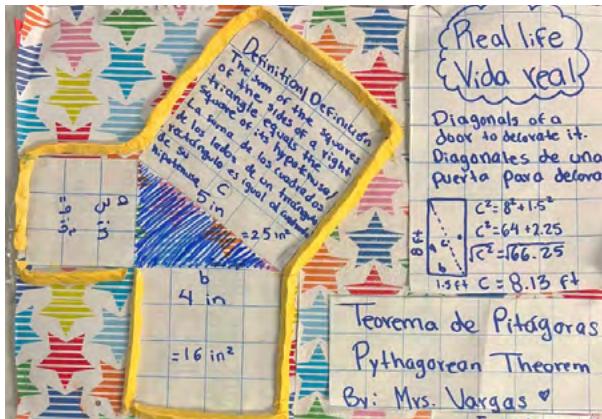 Definition | Definición
The sum of the squares
of the sides of a right
triangle equals the
square of its hypotenuse,
La suma de los cuadrados
de los lados de un triángulo
rectángulo es igual al
de su
hipotenusa
c
5 in
=25 in²
a
3 in
=9 in²
b
4 in
=16 in²
Real life
Vida real
Diagonals of a
door to decorate it.
Diagonales de una
puerta para decora
8 ft
c
b
1.5 ft
c² = 8² + 1.5²
c² = 64 + 2.25
√c² = √66.25
C = 8.13 ft
Teorema de Pitágoras
Pythagorean Theorem
By: Mrs. Vargas ♥